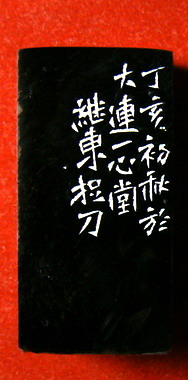 丁亥初秋於
大連一心堂
继東捉刀